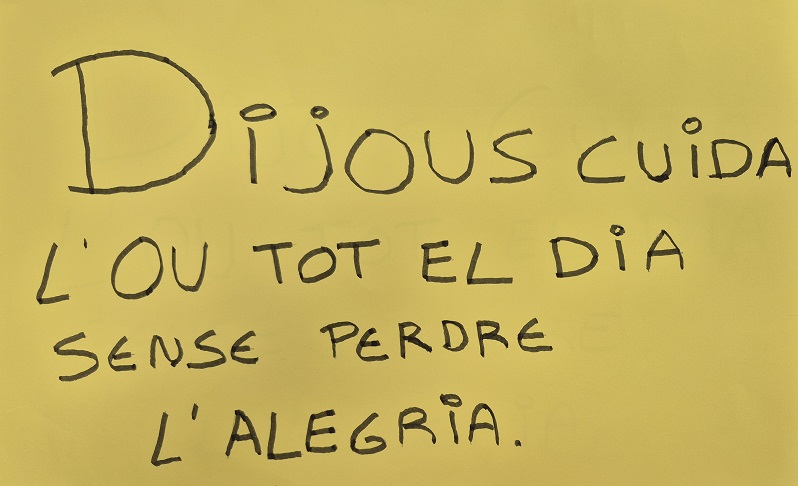 Dijous cuida
l'ou tot el dia
sense perdre
l'alegria.